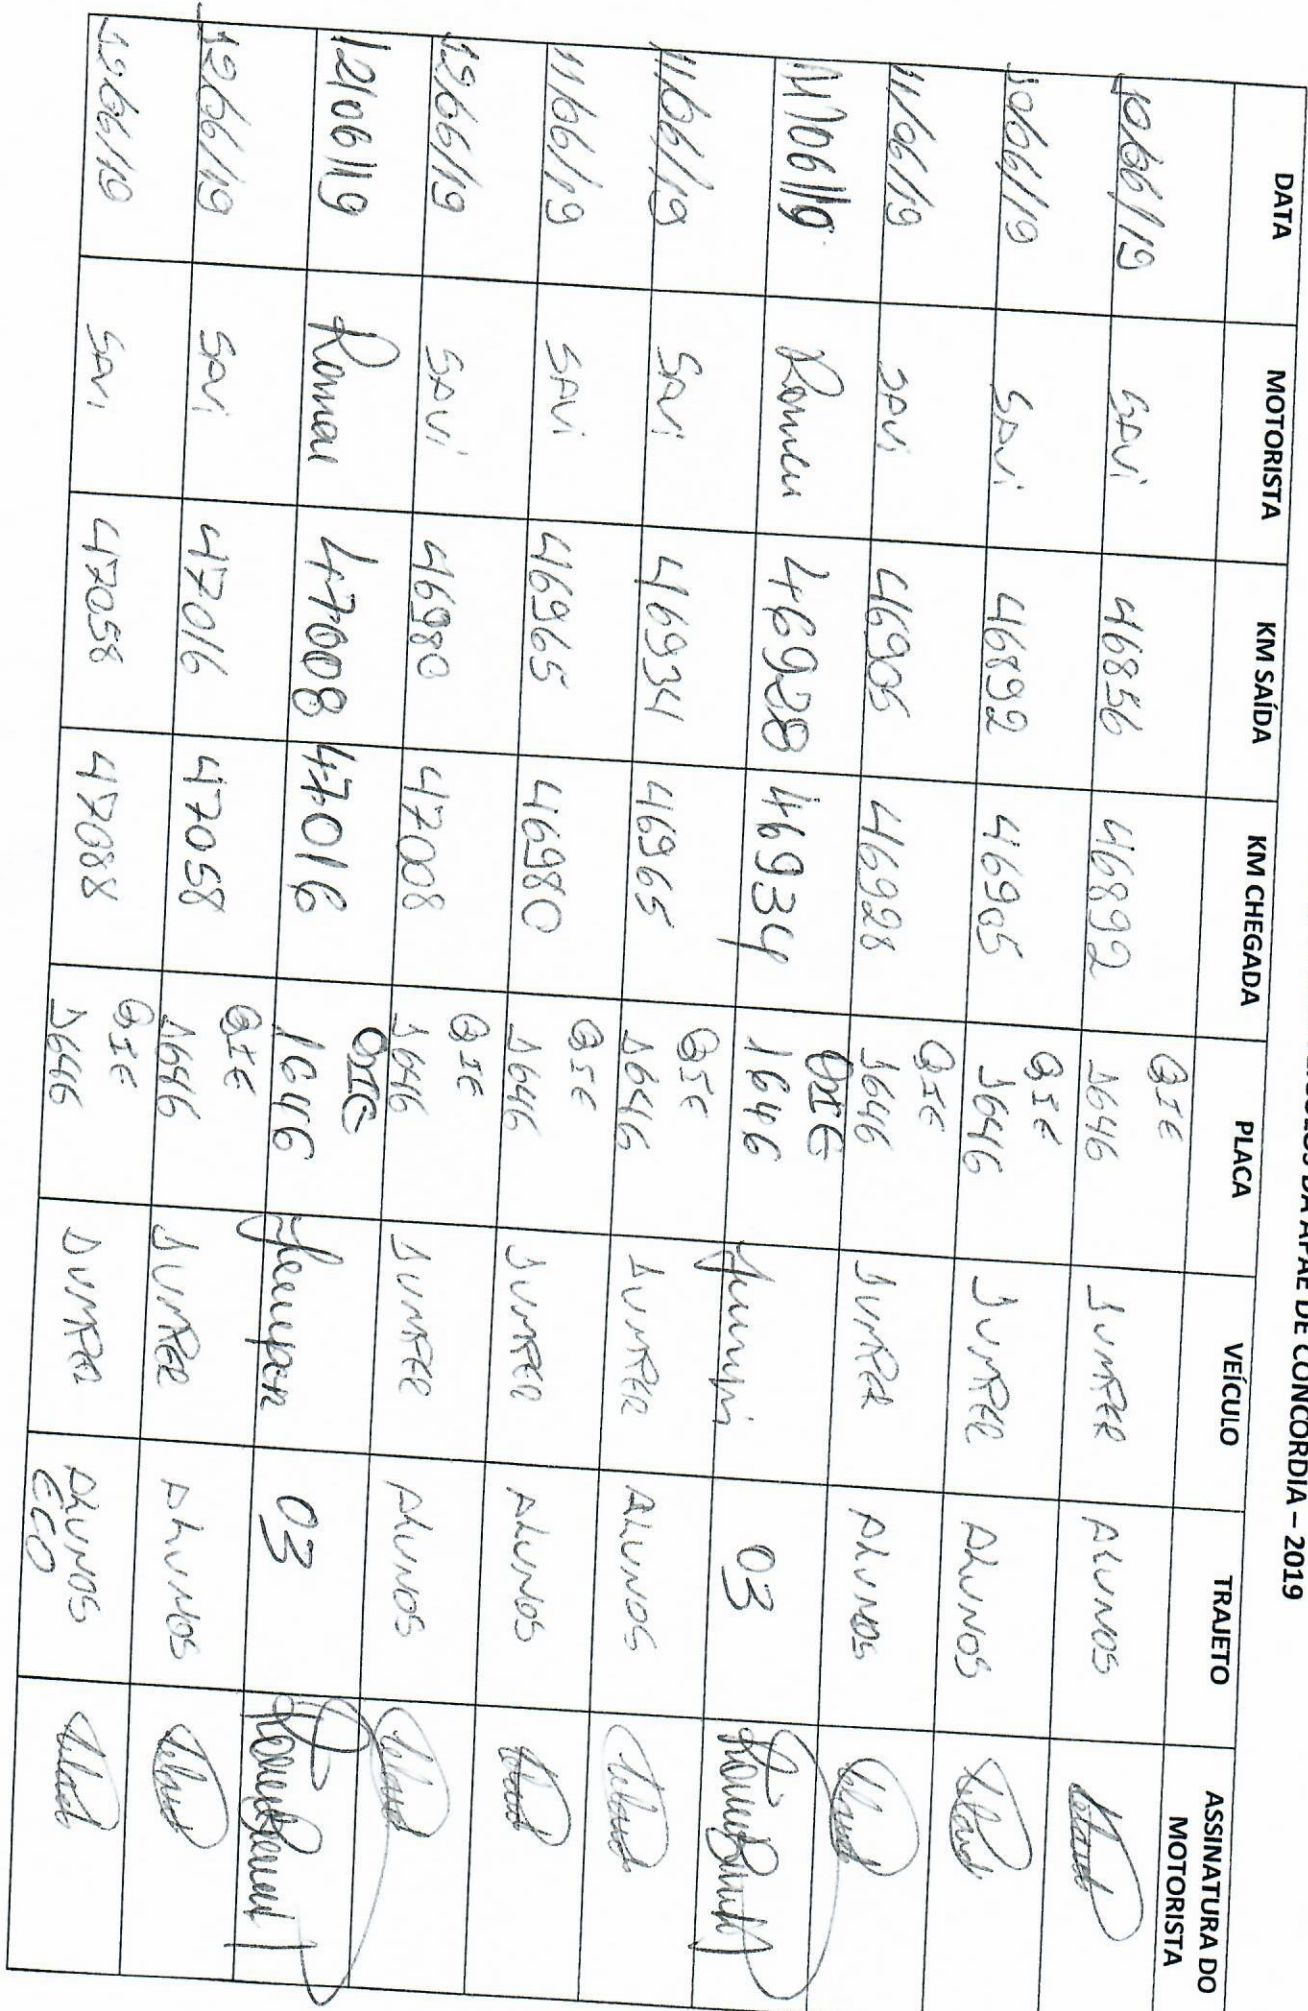 DA APAE DE CONCÓRDIA – 2019
DATA MOTORISTA KM SAÍDA KM CHEGADA PLACA VEÍCULO TRAJETO ASSINATURA DO
MOTORISTA
10/06/19 SAVI 46856 46892 QIE
1646 JUMPER ALUNOS
10/06/19 SAVI 46892 46905 QIE
1646 JUMPER ALUNOS
11/06/19 SAVI 46905 46928 QIE
1646 JUMPER ALUNOS
11/06/19 Romeu 46928 46934 QIE
1646 03
11/06/19 SAVI 46934 46965 QIE
1646 JUMPER ALUNOS
11/06/19 SAVI 46965 46980 QIE
1646 JUMPER ALUNOS
12/06/19 SAVI 46980 47008 QIE
1646 JUMPER ALUNOS
12/06/19 Romeu 47008 47016 QIE
1646 Jumper 03
12/06/19 SAVI 47016 47058 QIE
1646 JUMPER ALUNOS
12/06/19 SAVI 47058 47088 QIE
1646 JUMPER ALUNOS
ECO